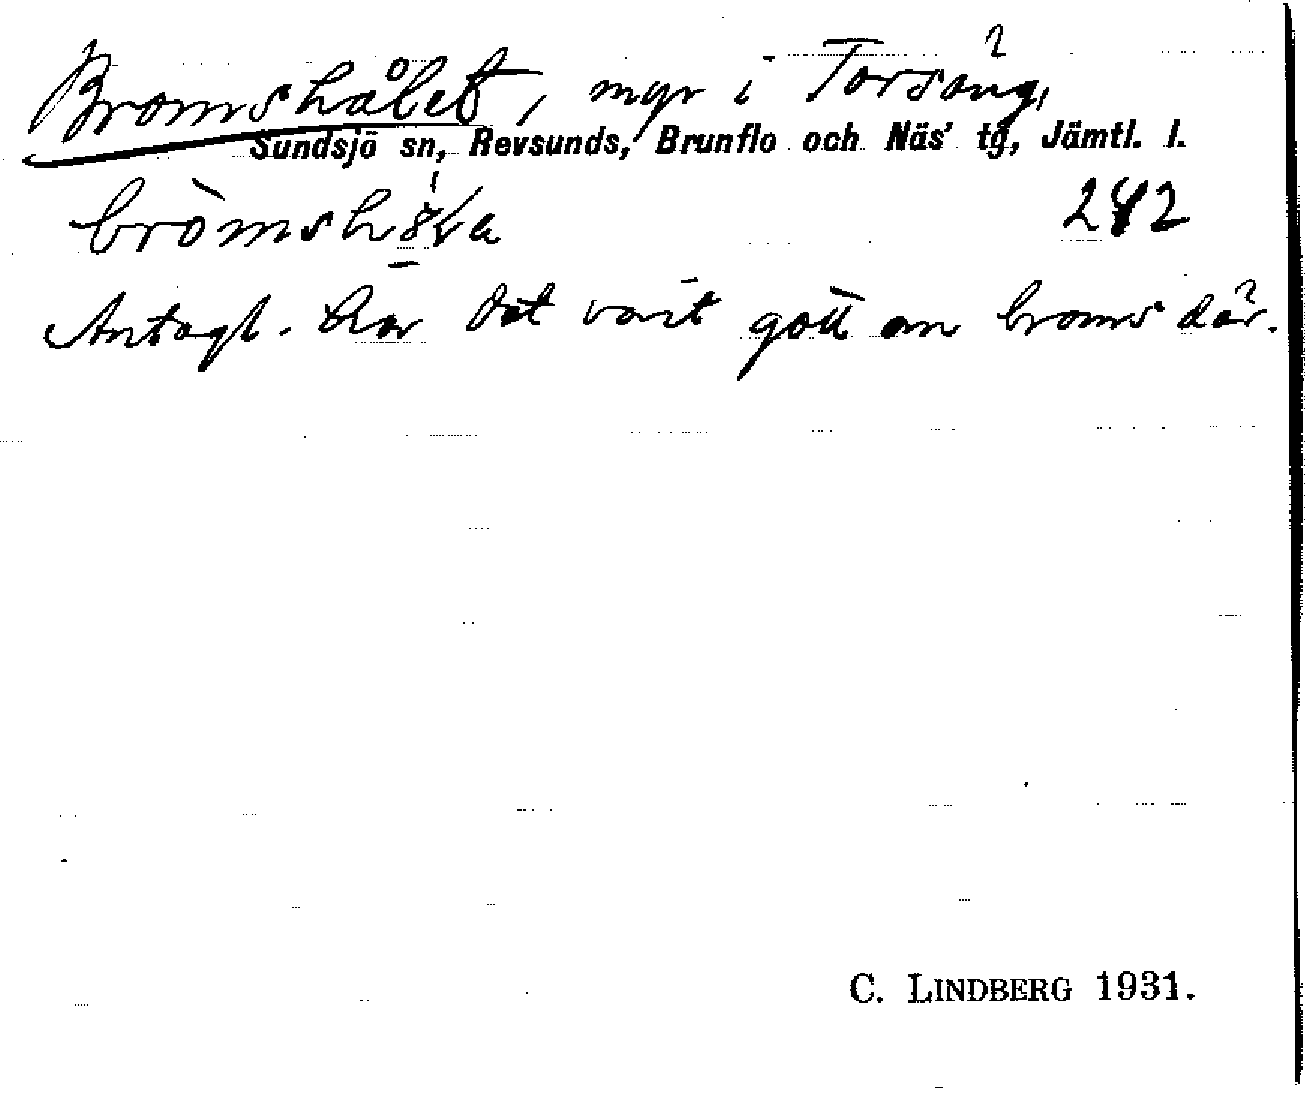 Bromshålet, myr i Torsång,
Sundsjö sn, Revsunds, Brunflo och Näs' tg, Jämtl. l.
282
Antagl. har det varit gott om broms där.
C. LINDBERG 1931.